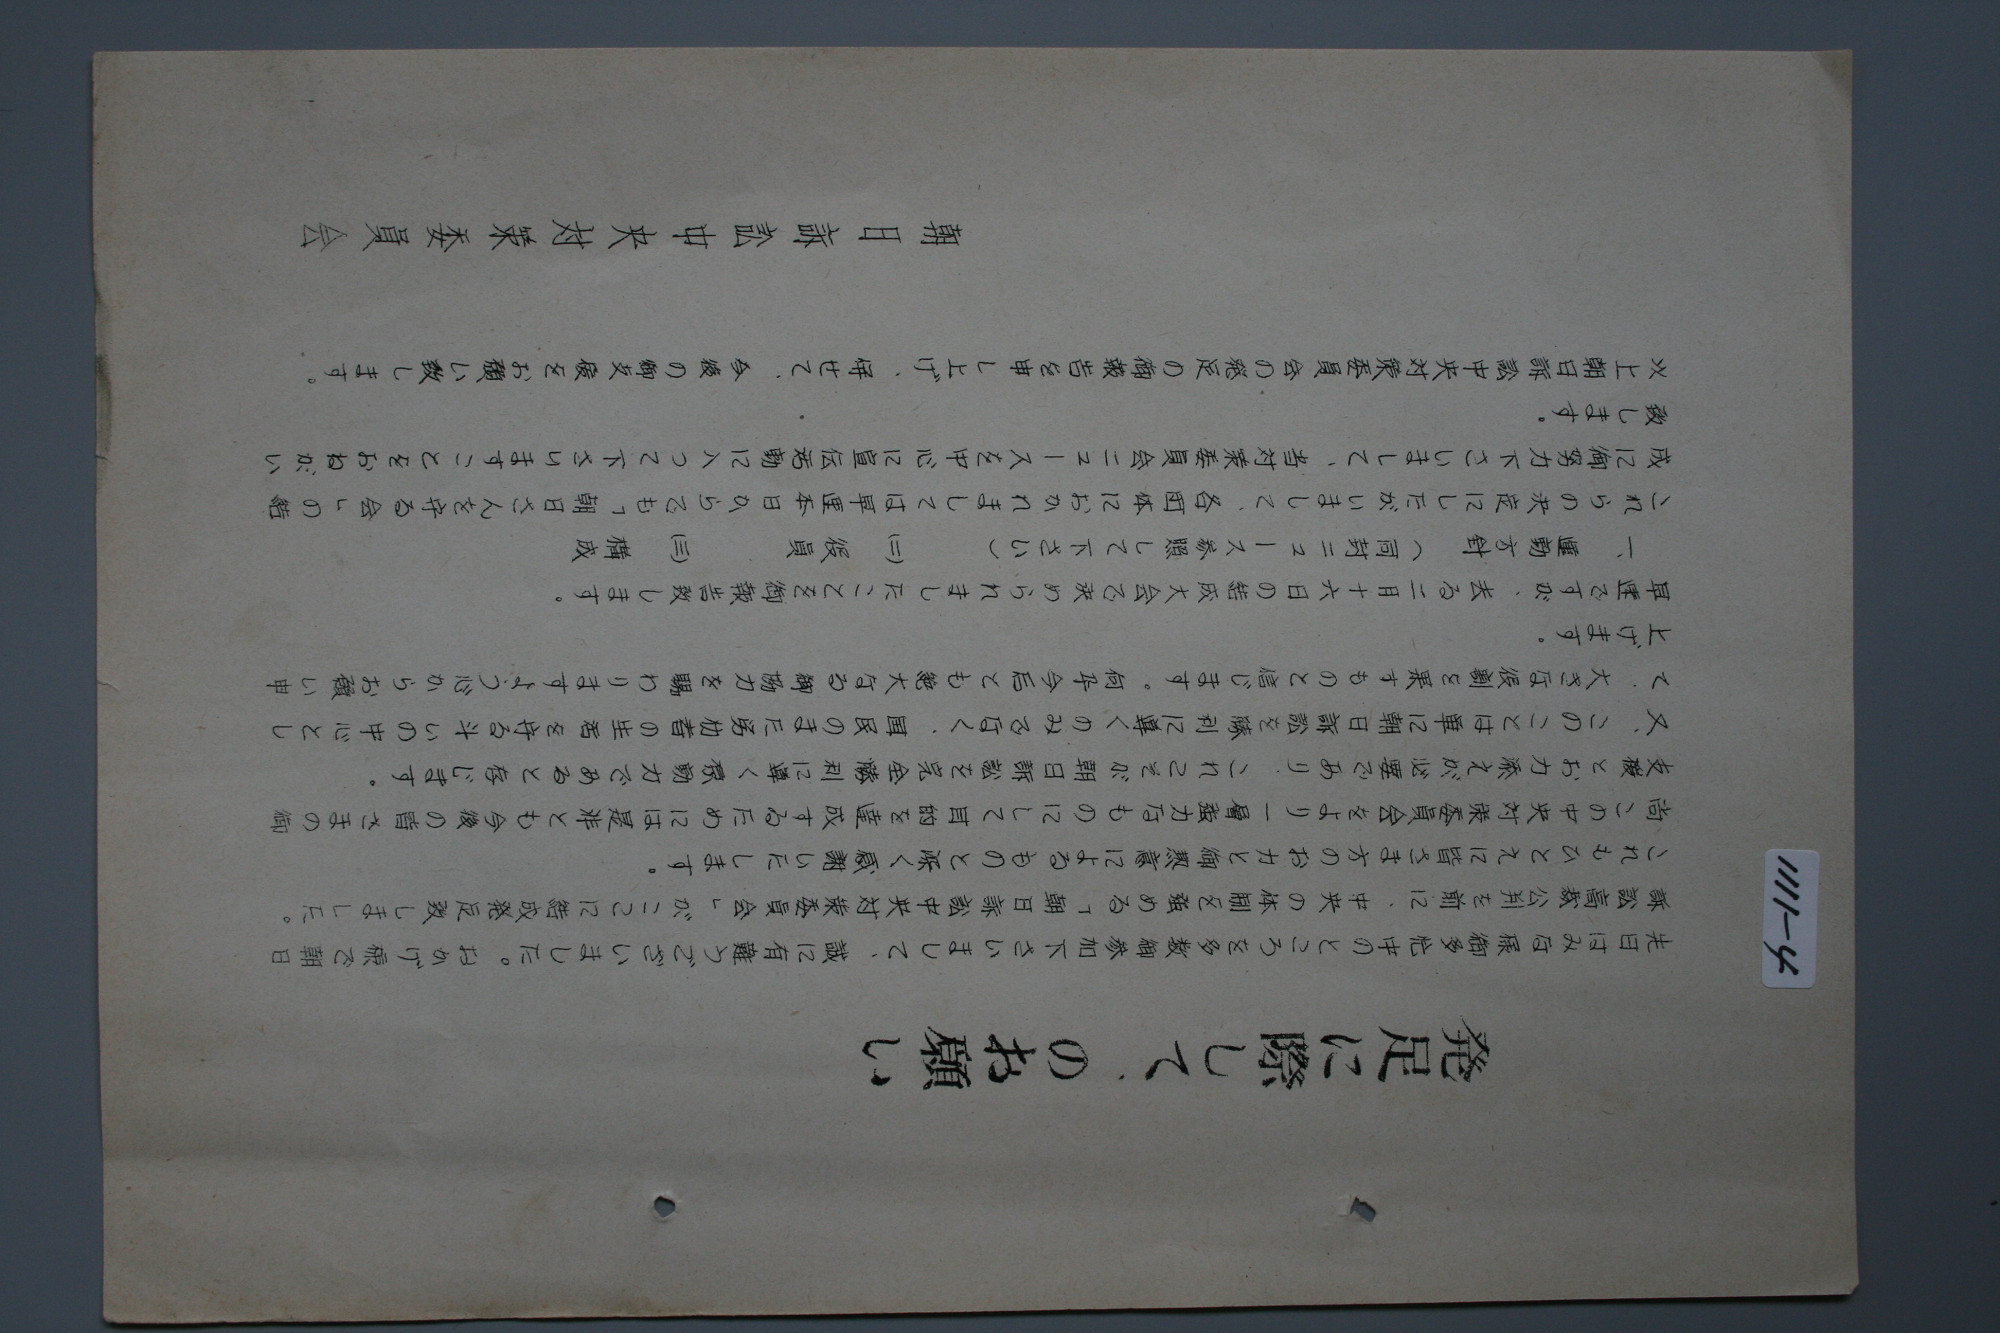 発足に際して、のお願い
先日はみな様御多忙中のところを多数御参加下さいまして、誠に有難うございました。おかげ様で朝日
訴訟高裁公判を前に、中央の体制を強める「朝日訴訟中央対策委員会」がここに結成発足致しました。
これもひとえに皆さま方のお力と御熱意によるものと深く感謝いたします。
尚この中央対策委員会をより一層強力なものにして目的を達成するためには是非とも今後の皆さまの御
支援とお力添えが必要であり、これこそが朝日訴訟を完全勝利に導く原動力であると存じます。
又、このことは単に朝日訴訟を勝利に導くのみでなく、国民のまた労仂者の生活を守る斗いの中心とし
て、大きな役割を果すものと信じます。何卒今后とも絶大なる御協力を賜わりますよう心からお願い申
上げます。
早速ですが、去る二月十六日の結成大会で決められましたことを御報告致します。
一、運動方針（同封ニュース参照して下さい） （二）役員 （三）構成
これらの決定にしたがいまして、各団体におかれましては早速本日からでも「朝日さんを守る会」の結
成に御努力下さいまして、当対策委員会ニュースを中心に宣伝活動に入って下さいますことをおねがい
致します。
以上朝日訴訟中央対策委員会の発足の御報告を申し上げ、併せて、今後の御支援をお願い致します。
朝日訴訟中央対策委員会
1111-4